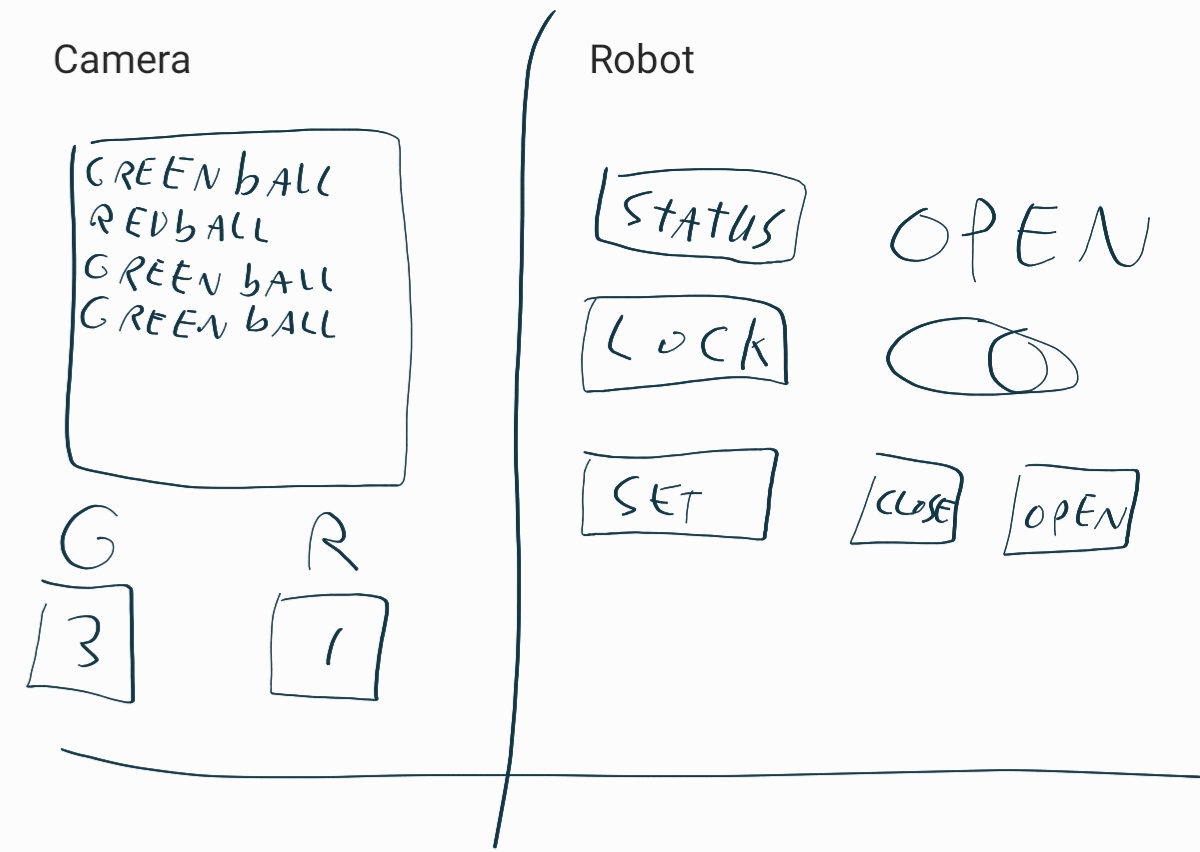 Camera
GREEN bALL
RED bALL
GREEN bALL
GREEN bALL
G R
3 1
Robot
STATUS OPEN
LOCK
SET CLOSE OPEN